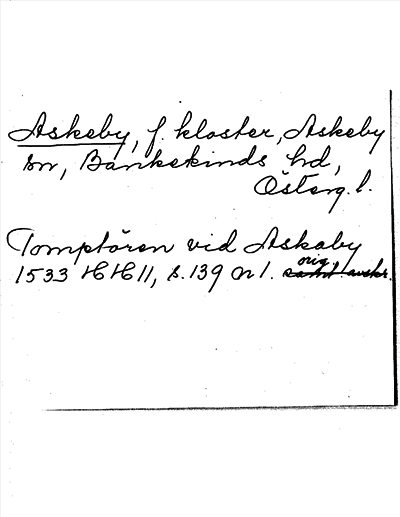 Askeby, f. kloster, Askeby
sn, Bankekinds hd,
Österg. l.
Tomptören vid Askaby
orig.
1533 HH 11, s. 139 n 1. samt. avskr.